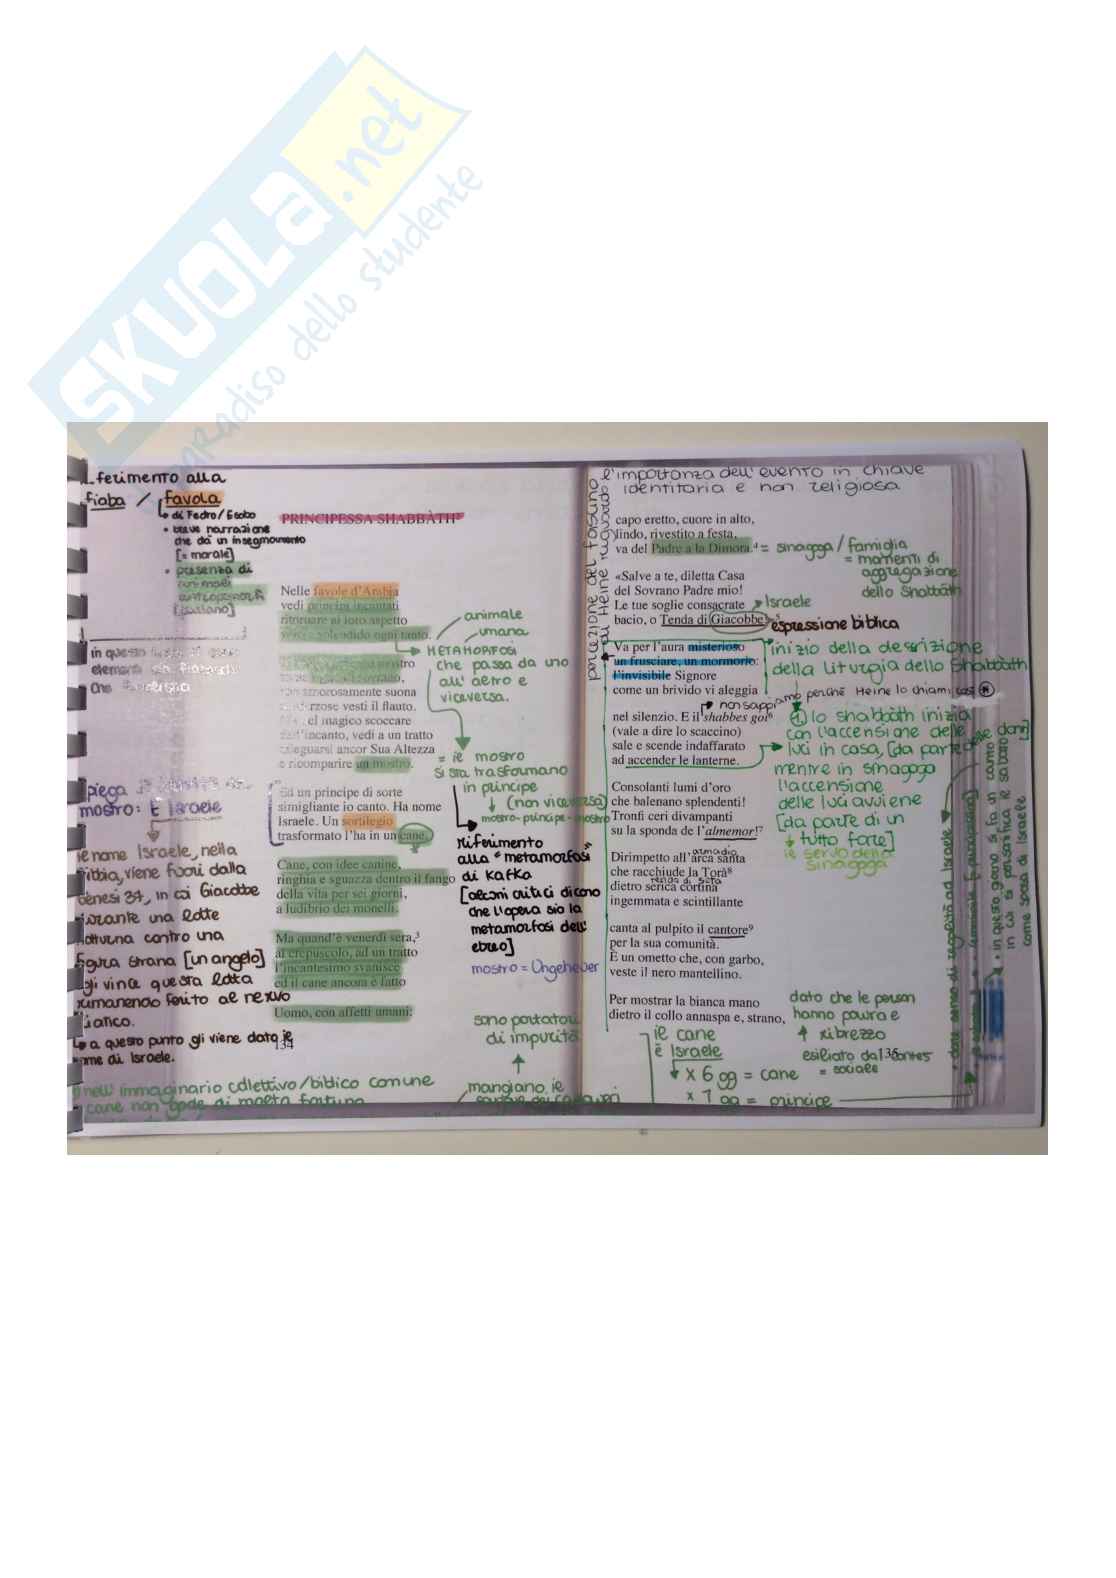 SKUOLA.net
paradiso dello studente
ferimento alla
fiaba / favola
di Fedro/Esobo
• breve narrazione
che dà un insegnamento
[= morale]
• presenza di
animali
[parlano]
in questo
elementi
che
mostro: È Israele
il nome Israele, nella
Bibbia, viene fuori dalla
Genesi 37, in cui Giacobbe
durante una lotte
notturna contro una
figura strana [un angelo]
gli vince questa lotta
rimanendo ferito al nervo
sciatico.
↳ a questo punto gli viene dato il
nome di Israele.
nell'immaginario collettivo/biblico comune
cane non gode di molta fortuna
PRINCIPESSA SHABBÀTH
Nelle favole d'Arabia
vedi principi incantati
ritornare al loro aspetto
vero e splendido ogni tanto.
mostro
amorosamente suona
vesti il flauto.
el magico scoccare
d'incanto, vedi a un tratto
dileguarsi ancor Sua Altezza
e ricomparire un mostro.
Ed un principe di sorte
simigliante io canto. Ha nome
Israele. Un sortilegio
trasformato l'ha in un cane.
Cane, con idee canine,
ringhia e sguazza dentro il fango
della vita per sei giorni,
a ludibrio dei monelli.
Ma quand'è venerdì sera,³
al crepuscolo, ad un tratto
l'incantesimo svanisce
ed il cane ancora è fatto
Uomo, con affetti umani:
134
animale
umana
METAMORFOSI
che passa da uno
all'altro e
viceversa.
= il mostro
si sta trasformano
in principe
↓ (non viceversa)
mostro-principe-mostro
riferimento
alla "metamorfosi"
di Kafka
[alcuni critici dicono
che l'opera sia la
metamorfosi dell'
ebreo]
mostro = Ungeheuer
sono portatori
di impurità
mangiano il
l'importanza dell'evento in chiave
identitaria e non religiosa
percezione del
di Heine riguardo
capo eretto, cuore in alto,
lindo, rivestito a festa,
va del Padre a la Dimora.⁴
= sinagoga/famiglia
= momenti di
aggregazione
dello Shabbàth
«Salve a te, diletta Casa
del Sovrano Padre mio!
Le tue soglie consacrate
bacio, o Tenda di Giacobbe»⁵
Israele
espressione biblica
Va per l'aura misterioso
un frusciare, un mormorio:
l'invisibile Signore
come un brivido vi aleggia
inizio della descrizione
della liturgia dello Shabbàth
non sappiamo perché Heine lo chiami così
nel silenzio. E il shabbes goi⁶
(vale a dire lo scaccino)
sale e scende indaffarato
ad accender le lanterne.
lo shabbàth inizia
con l'accensione delle
luci in casa, [da parte delle donne]
mentre in sinagoga
l'accensione
delle luci avviene
[da parte di un
tutto fare]
il servo della
sinagoga
Consolanti lumi d'oro
che balenano splendenti!
Tronfi ceri divampanti
su la sponda de l'almemor!⁷
armadio
Dirimpetto all'arca santa
che racchiude la Torà⁸
tenda di seta
dietro serica cortina
ingemmata e scintillante
canta al pulpito il cantore⁹
per la sua comunità.
È un ometto che, con garbo,
veste il nero mantellino.
Per mostrar la bianca mano
dietro il collo annaspa e, strano,
dato che le person
hanno paura e
ribrezzo
esiliato dal contes
= sociale
il cane
è Israele
x 6 gg = cane
x 1 gg = principe
• dare senso di regalità ad Israele
• in questo giorno si fa un canto
in cui si personifica il sabato
come sposa di Israele